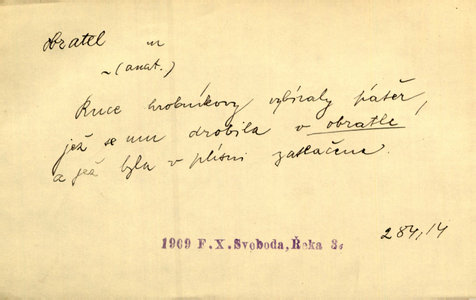 obratel m
~ (anat.)
Ruce hrobníkovy vybíraly páteř,
jež se mu drobila v obratle
a jež byla v plísni zatlačena.
1909 F.X.Svoboda, Řeka 3.
284,14